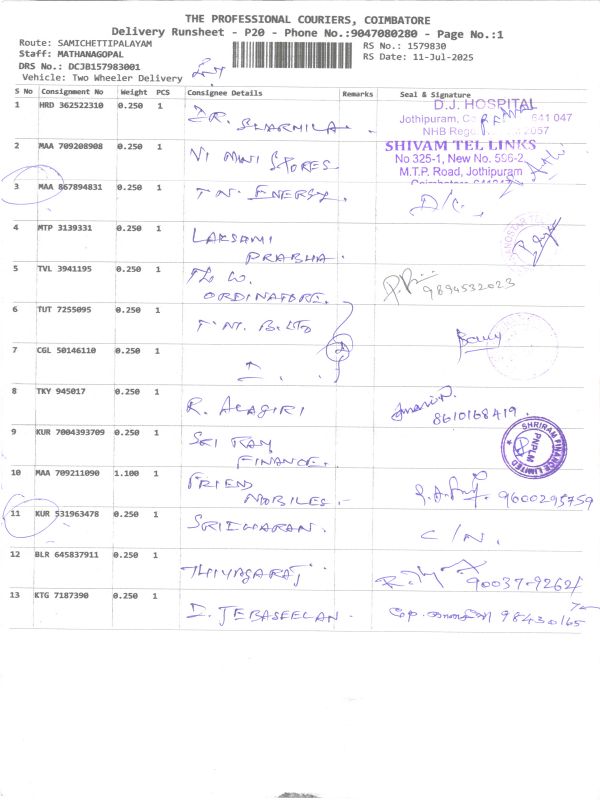 THE PROFESSIONAL COURIERS, COIMBATORE
Delivery Runsheet - P20 - Phone No.:9047080280 - Page No.:1
Route: SAMICHETTIPALAYAM
RS No.: 1579830
Staff: MATHANAGOPAL
RS Date: 11-Jul-2025
DRS No.: DCJB157983001
Vehicle: Two Wheeler Delivery
S No Consignment No Weight PCS Consignee Details Remarks Seal & Signature
1 HRD 362522310 0.250 1 DR. SHARMILA.
D.J. HOSPITAL
Jothipuram, 641 047
NHB 057
2 MAA 709208908 0.250 1 VI MNI STORES
SHIVAM TEL LINKS
No 325-1, New No. 596-2,
M.T.P. Road, Jothipuram
3 MAA 867894831 0.250 1 T.N. ENERGY. D/C.
4 MTP 3139331 0.250 1 LAKSAMI
PRABHA.
5 TVL 3941195 0.250 1 THE W.
ORDINATORE.
9894532023
6 TUT 7255095 0.250 1 T.NT. B. LTD
7 CGL 50146110 0.250 1
8 TKY 945017 0.250 1 R. ALAGIRI
8610168419.
9 KUR 7004393709 0.250 1 SRI RAM
FINANCE.
SHRIRAM FINANCE LIMITED
PNPLM
10 MAA 709211090 1.100 1 FRIEND
MOBILES.
9600295759
11 KUR 531963478 0.250 1 SRIEWARAN. C/N.
12 BLR 645837911 0.250 1 THIYAGARAJ
13 KTG 7187390 0.250 1 I. JEBASEELAN.